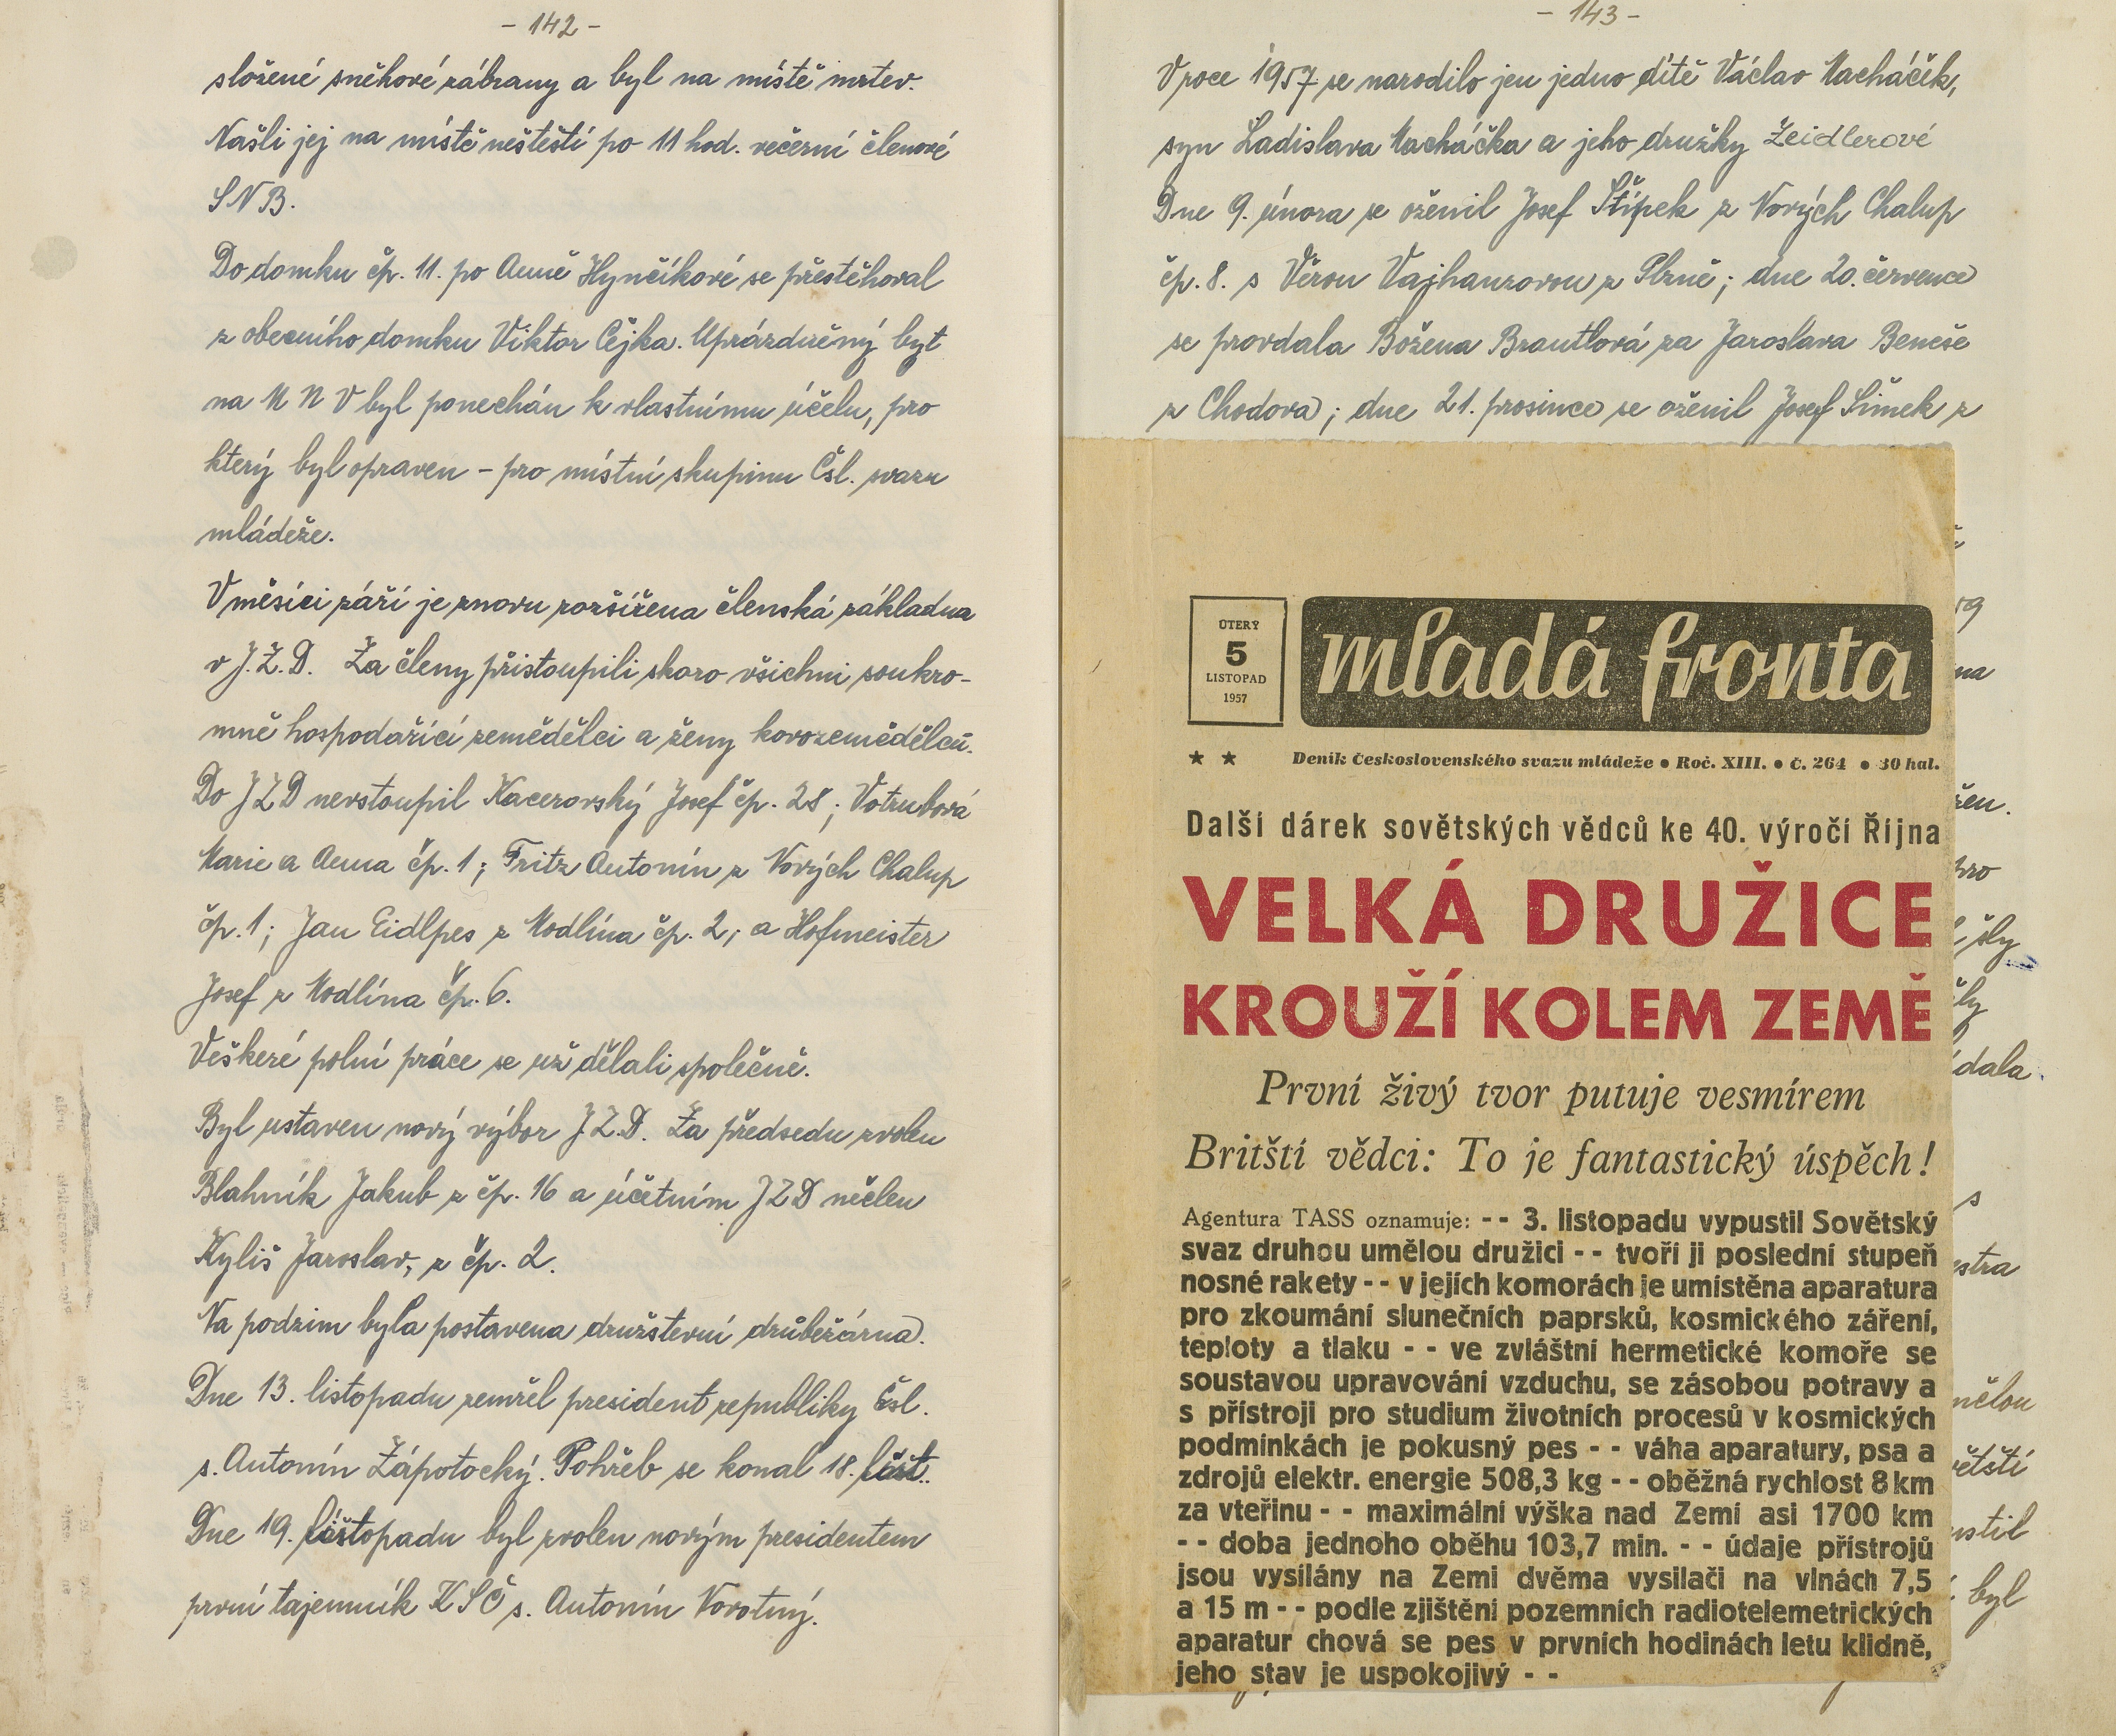 - 142 -
složené sněhové zábrany a byl na místě mrtev.
Našli jej na místě neštěstí po 11 hod. večerní členové
SNB.
Do domku čp. 11. po Anně Hynčíkové se přestěhoval
z obecního domku Viktor Čejka. Uprázdněný byt
na M N V byl ponechán k vlastnímu účelu, pro
který byl opraven - pro místní skupinu Čsl. svazu
mládeže.
V měsíci září je znovu rozšířena členská základna
v J.Z.D. Za členy přistoupili skoro všichni soukro-
mně hospodařící zemědělci a ženy kovozemědělců.
Do JZD nevstoupil Kacerovský Josef čp. 28; Votrubová
Marie a Anna čp. 1; Fritz Antonín z Nových Chalup
čp. 1; Jan Eidlpes z Modlína čp. 2; a Hofmeister
Josef z Modlína čp. 6.
Veškeré polní práce se už dělali společně.
Byl ustaven nový výbor J.Z.D. Za předsedu zvolen
Blahník Jakub z čp. 16 a účetním JZD nečlen
Kyliš Jaroslav, z čp. 2.
Na podzim byla postavena družstevní drůbežárna.
Dne 13. listopadu zemřel president republiky čsl.
s. Antonín Zápotocký. Pohřeb se konal 18. list.
Dne 19. listopadu byl zvolen novým presidentem
první tajemník KSČ s. Antonín Novotný.
- 143 -
V roce 1957 se narodilo jen jedno dítě Václav Macháček,
syn Ladislava Macháčka a jeho družky Zeidlerové
Dne 9. února se oženil Josef Štípek z Nových Chalup
čp. 8. s Věrou Vajhanzovou z Plzně; dne 20. července
se provdala Božena Brantlová za Jaroslava Beneše
z Chodova; dne 21. prosince se oženil Josef Šimek z
ÚTERÝ
5
LISTOPAD
1957
mladá fronta
★ ★ Deník Československého svazu mládeže • Roč. XIII. • Č. 264 • 30 hal.
Další dárek sovětských vědců ke 40. výročí Října
VELKÁ DRUŽICE
KROUŽÍ KOLEM ZEMĚ
První živý tvor putuje vesmírem
Britští vědci: To je fantastický úspěch!
Agentura TASS oznamuje: - - 3. listopadu vypustil Sovětský
svaz druhou umělou družici - - tvoří ji poslední stupeň
nosné rakety - - v jejích komorách je umístěna aparatura
pro zkoumání slunečních paprsků, kosmického záření,
teploty a tlaku - - ve zvláštní hermetické komoře se
soustavou upravování vzduchu, se zásobou potravy a
s přístroji pro studium životních procesů v kosmických
podmínkách je pokusný pes - - váha aparatury, psa a
zdrojů elektr. energie 508,3 kg - - oběžná rychlost 8 km
za vteřinu - - maximální výška nad Zemí asi 1700 km
- - doba jednoho oběhu 103,7 min. - - údaje přístrojů
jsou vysílány na Zemi dvěma vysilači na vlnách 7,5
a 15 m - - podle zjištění pozemních radiotelemetrických
aparatur chová se pes v prvních hodinách letu klidně,
jeho stav je uspokojivý - -